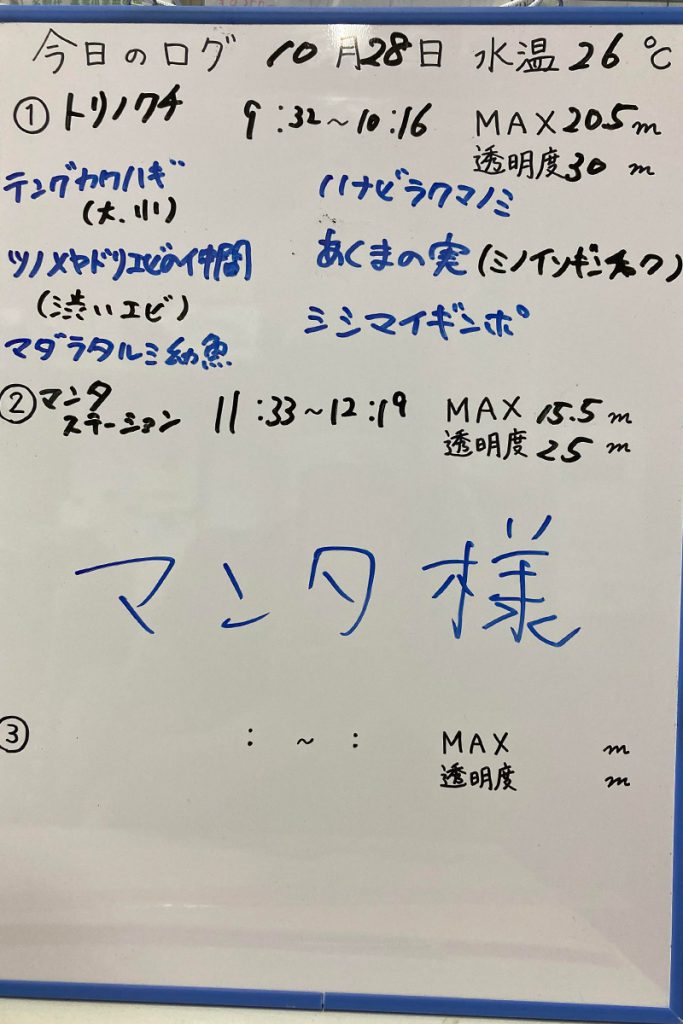 今日のログ 10月28日 水温26℃
① トリノクチ 9:32～10:16 MAX 20.5m
透明度30m
テングカワハギ
(大.小)
ハナビラクマノミ
ツノメヤドリエビの仲間
(渋いエビ)
あくまの実(ミノイソギンチャク)
マダラタルミ幼魚
シシマイギンポ
② マンタ
ステーション 11:33～12:19 MAX 15.5m
透明度25m
マンタ様
③ : ～ : MAX m
透明度 m